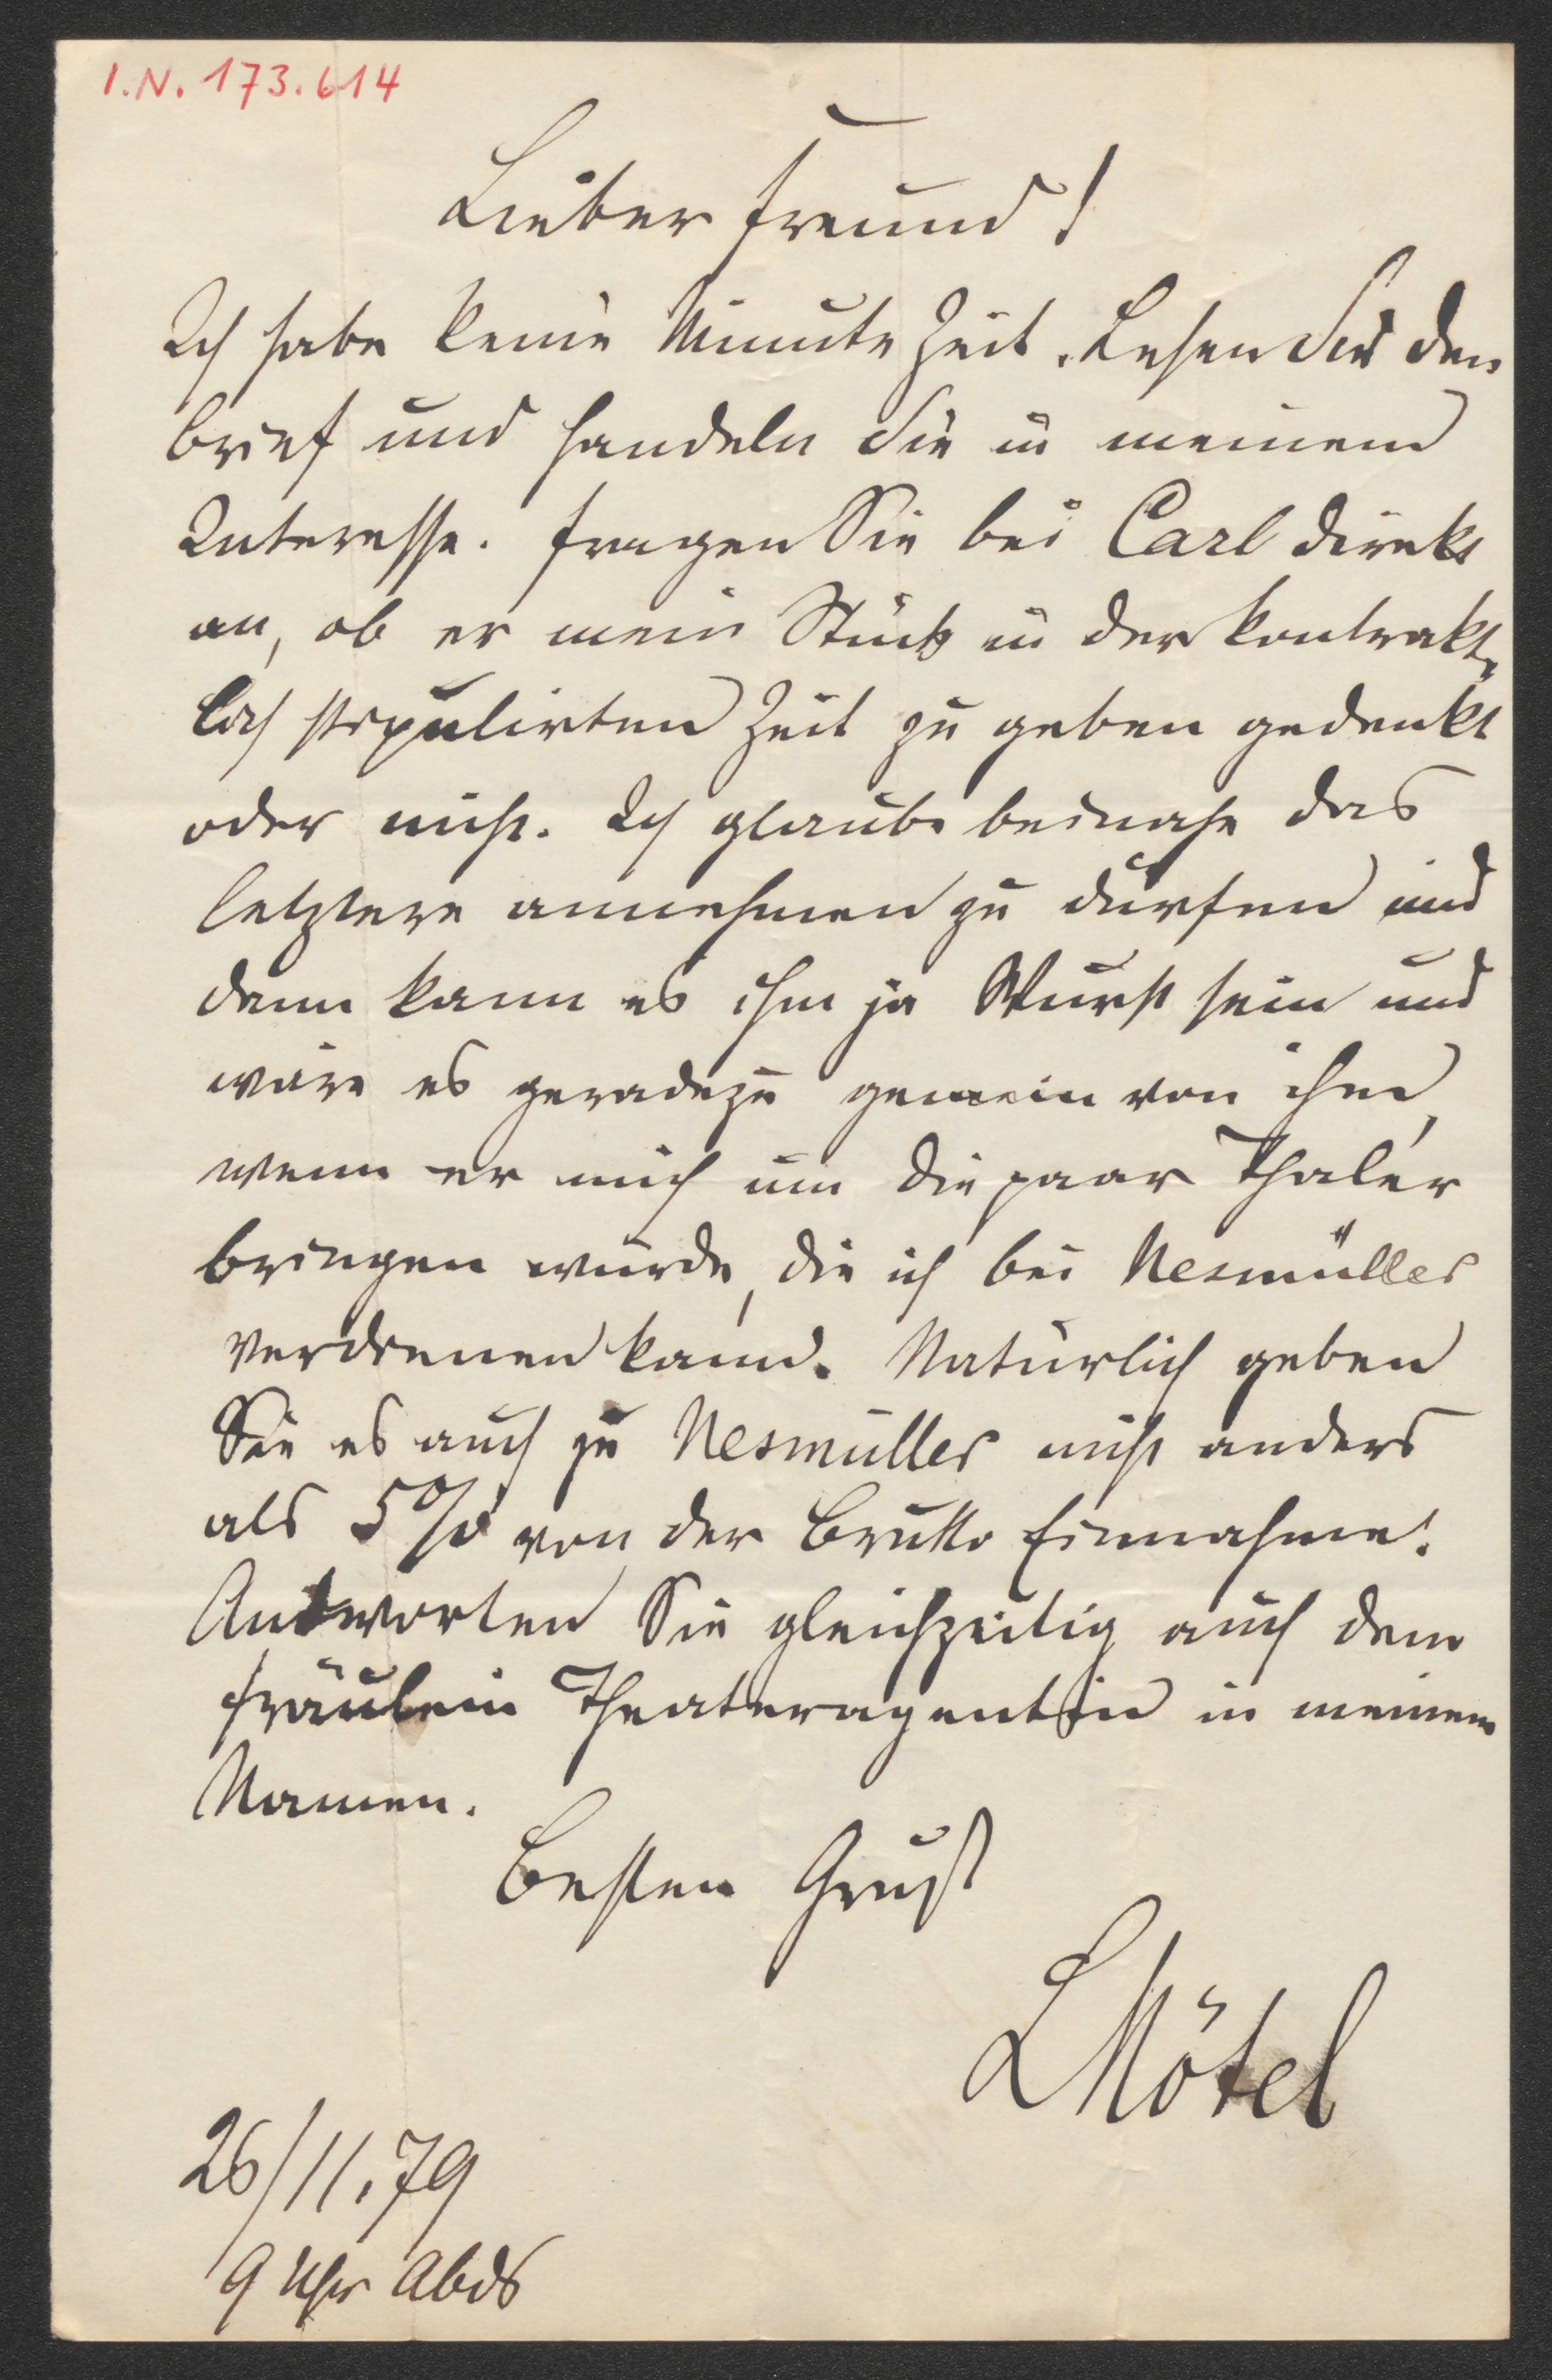 I.N. 173.614
Lieber Freund!
Ich habe keine Minute Zeit. Lesen Sie den
Brief und handeln Sie in meinem
Interesse. Fragen Sie bei Carl direkt
an, ob er mein Stück in der kontrakt-
lich stipulirten Zeit zu geben gedenkt
oder nicht. Ich glaube beinahe das
letztere annehmen zu dürfen und
dann kann es ihm ja Wurst sein und
wäre es geradezu gemein von ihm,
wenn er mich um die paar Thaler
bringen würde, die ich bei Nesmüller
verdienen kann. Natürlich geben
Sie es auch zu Nesmüller nicht anders
als 5% von der Brutto Einnahme!
Antworten Sie gleichzeitig auch dem
Fräulein Theateragentin in meinem
Namen.
Besten Gruß
26/11.79
9 Uhr Abds